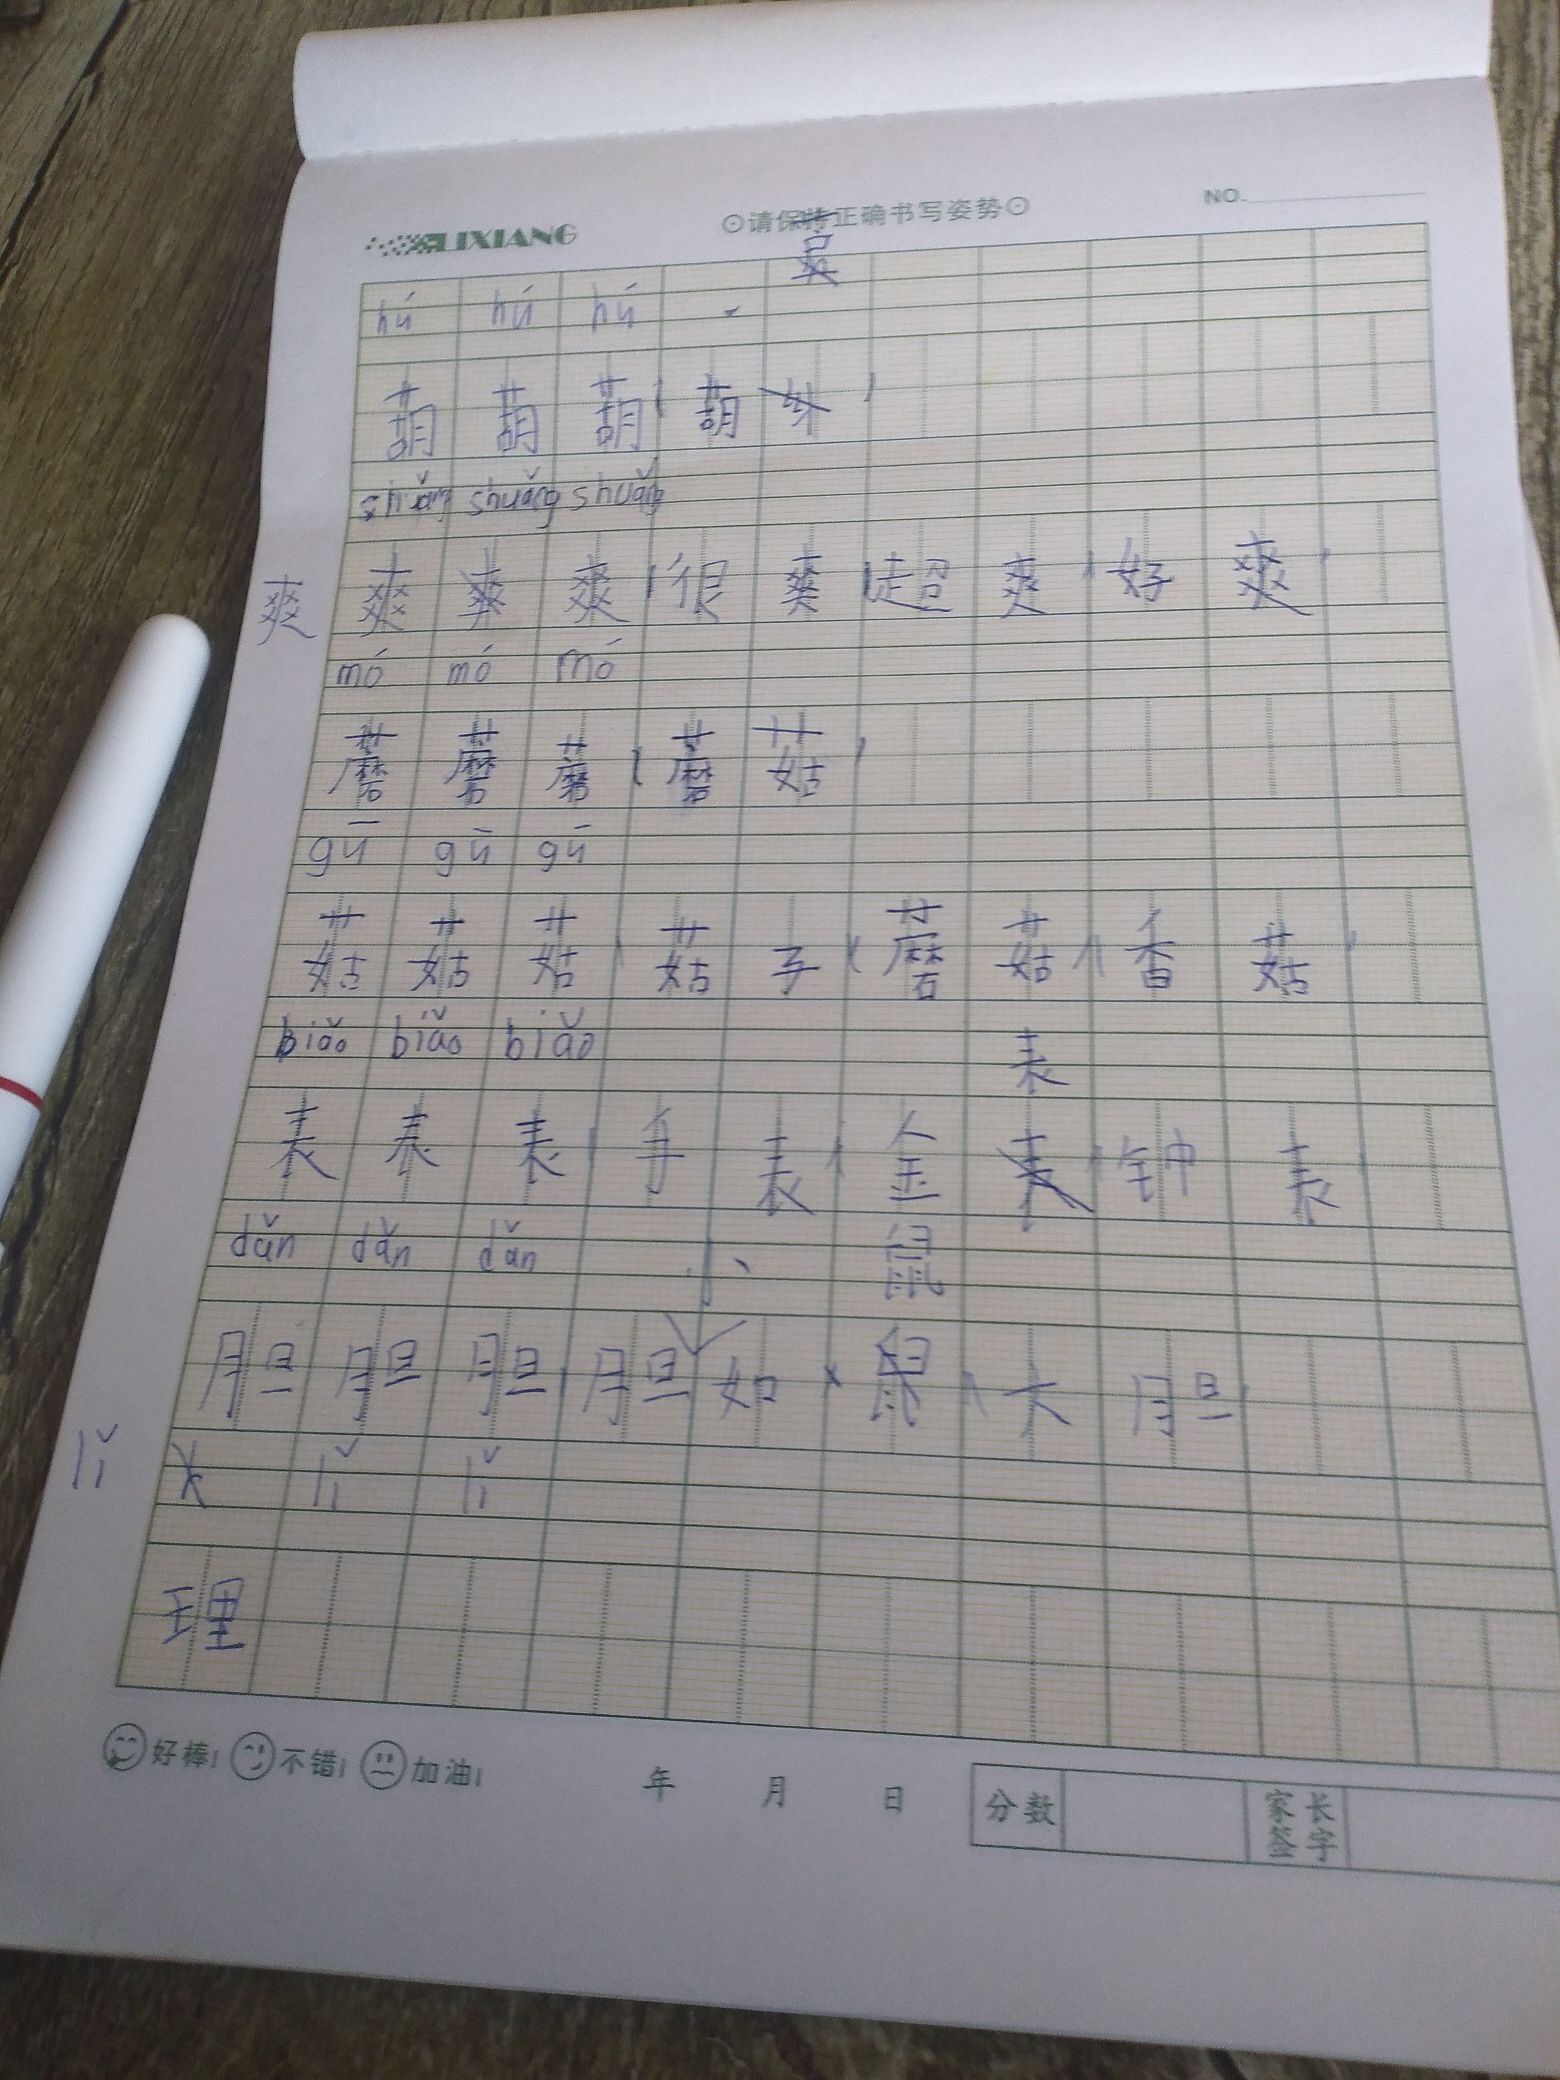 LIXIANG ⊙请保持正确书写姿势⊙ NO.
hú hú hú
葫 葫 葫 葫
shuǎng shuǎng shuǎng
爽 爽 爽 爽 很 爽 超 爽 好 爽
mó mó mó
蘑 蘑 蘑 蘑 菇
gū gū gū
菇 菇 菇 菇 子 蘑 菇 香 菇
biǎo biǎo biǎo 表
表 表 表 手 表 金 表 钟 表
dǎn dǎn dǎn 小 鼠
胆 胆 胆 胆 如 鼠 大 胆
lǐ lǐ lǐ
理
好棒! 不错! 加油! 年 月 日 分数 家长签字